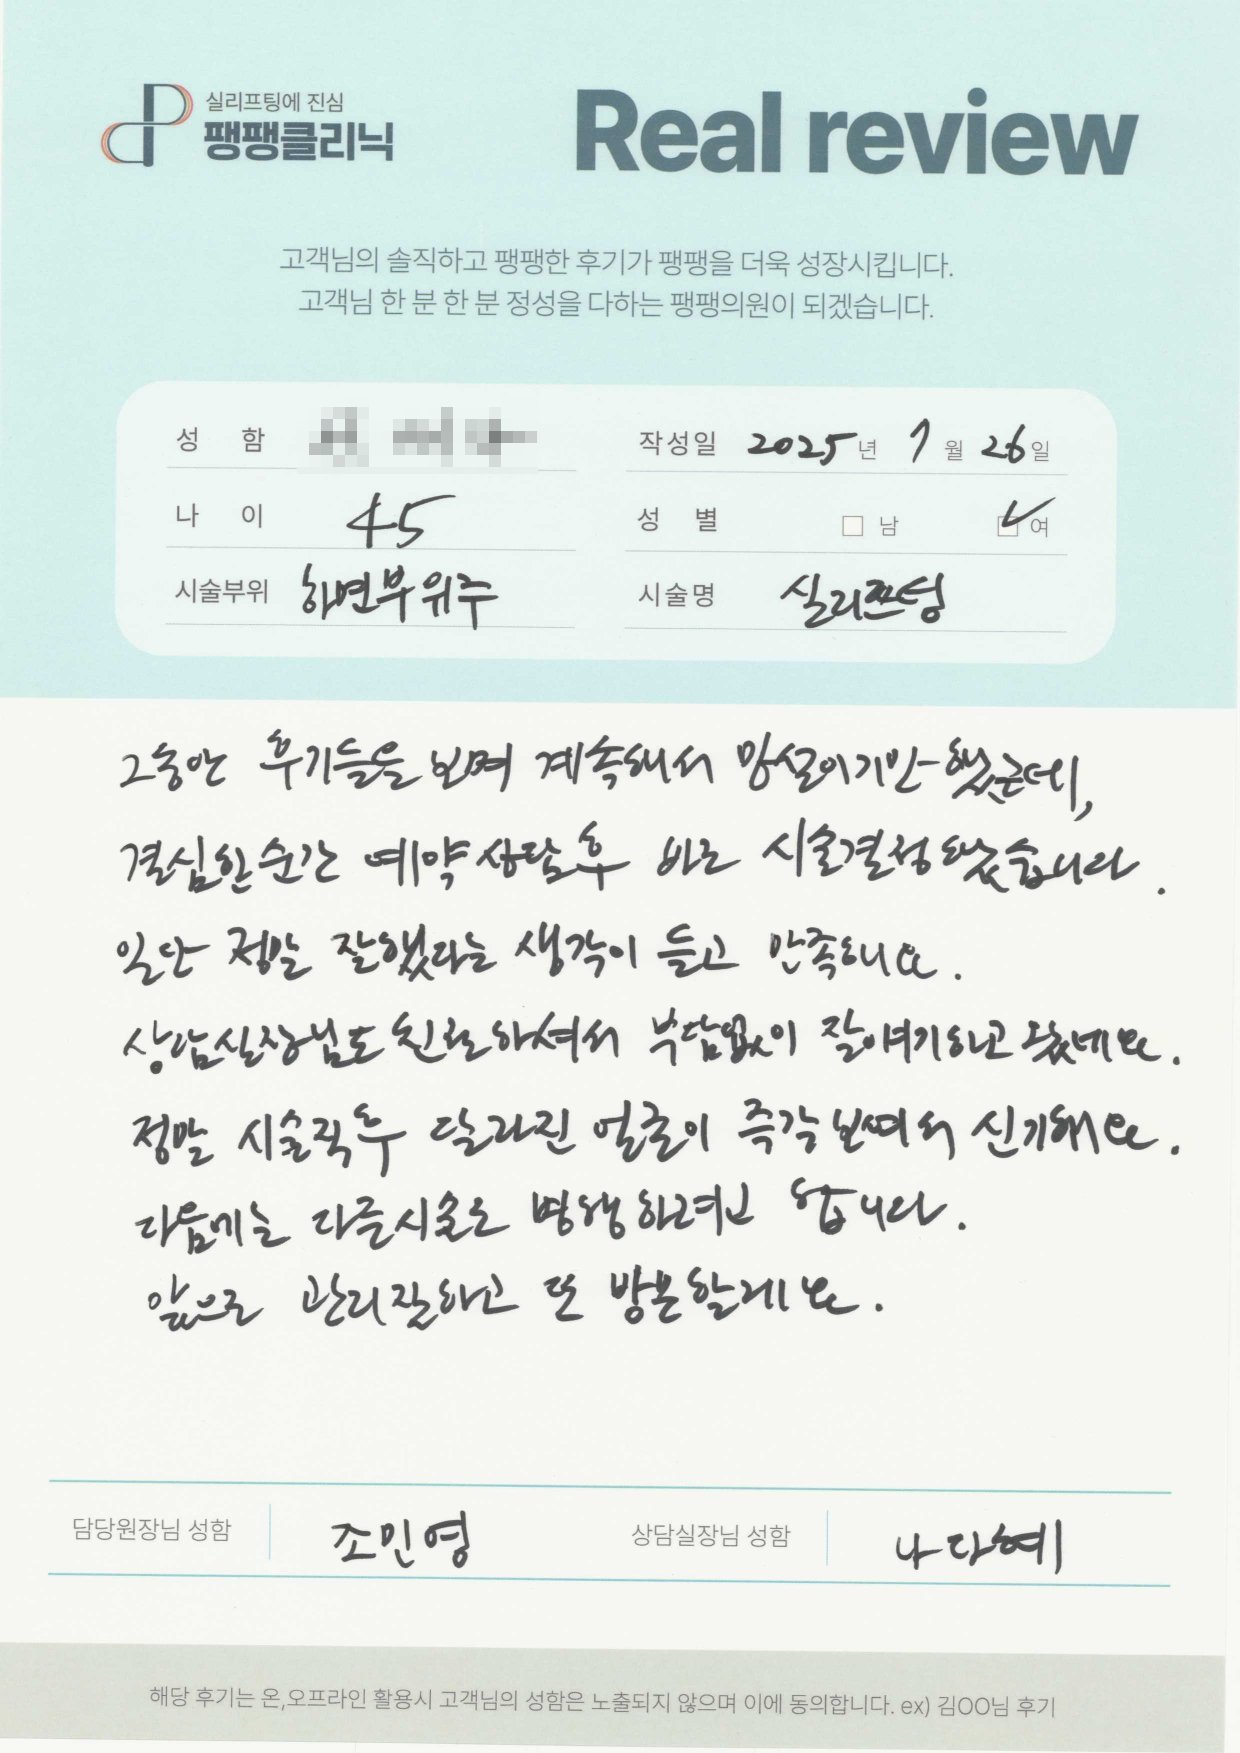 실리프팅에 진심
팽팽클리닉
Real review
고객님의 솔직하고 팽팽한 후기가 팽팽을 더욱 성장시킵니다.
고객님 한 분 한 분 정성을 다하는 팽팽의원이 되겠습니다.
성 함 작성일 2025년 7월 26일
나 이 45 성 별 남 여
시술부위 하면부위주 시술명 실리프팅
그동안 후기들을 보며 계속해서 망설이기만 했는데,
결심한순간 예약상담후 바로 시술결정했습니다.
일단 정말 잘했다는 생각이 들고 만족해요.
상담실장님도 친절하셔서 부담없이 잘얘기하고 왔네요.
정말 시술직후 달라진 얼굴이 즉각보여서 신기해요.
다음에는 다른시술도 병행하려고 합니다.
앞으로 관리잘하고 또 방문할게요.
담당원장님 성함 조민영 상담실장님 성함 나다혜
해당 후기는 온,오프라인 활용시 고객님의 성함은 노출되지 않으며 이에 동의합니다. ex) 김OO님 후기